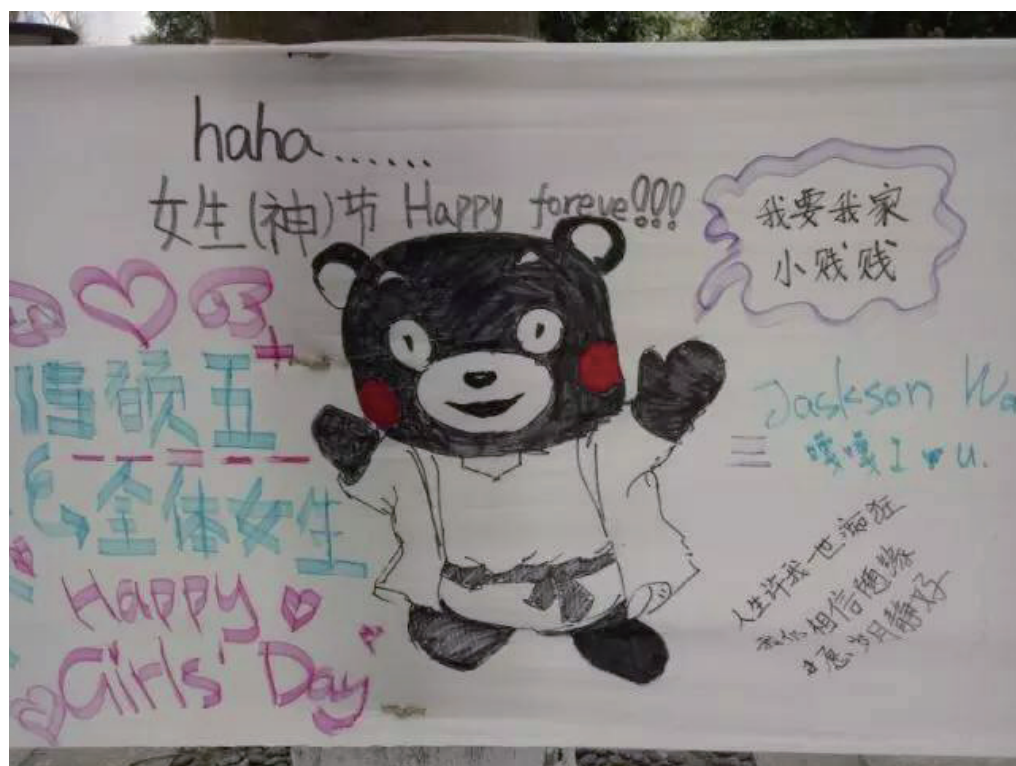 haha......
女生(神)节 Happy foreve!!!
我要我家
小贱贱
硕五
全体女生
Happy
Girls' Day
Jaskson Wa
嘎嘎 I ♥ u.
人生许我一世痴狂
我们相信
愿岁月静好